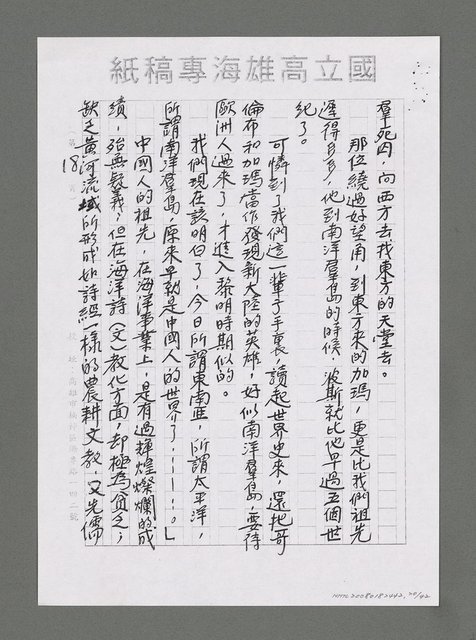 國立高雄海專稿紙
羣死囚，向西方去找東方的天堂去。
那位繞過好望角，到東方來的加瑪，更是比我們祖先
遲得多多，他到南洋羣島的時候，波斯就比他早過五個世
紀了。
可憐到了我們這一輩子手裏，讀起世界史來，還把哥
倫布和加瑪當作發現新大陸的英雄，好似南洋羣島，要待
歐洲人過來了，才進入黎明時期似的。
我們現在該明白了，今日所謂東南亞，所謂太平洋，
所謂南洋羣島，原來早就是中國人的世界了⋯⋯。」
中國人的祖先，在海洋事業上，是有過輝煌燦爛的成
績，殆無疑義，但在海洋詩（文）教化方面，却極為貧乏；
缺乏黃河流域所形成如詩經一樣的農耕文教，又先儒
18
NMTL20080182442, 20/42